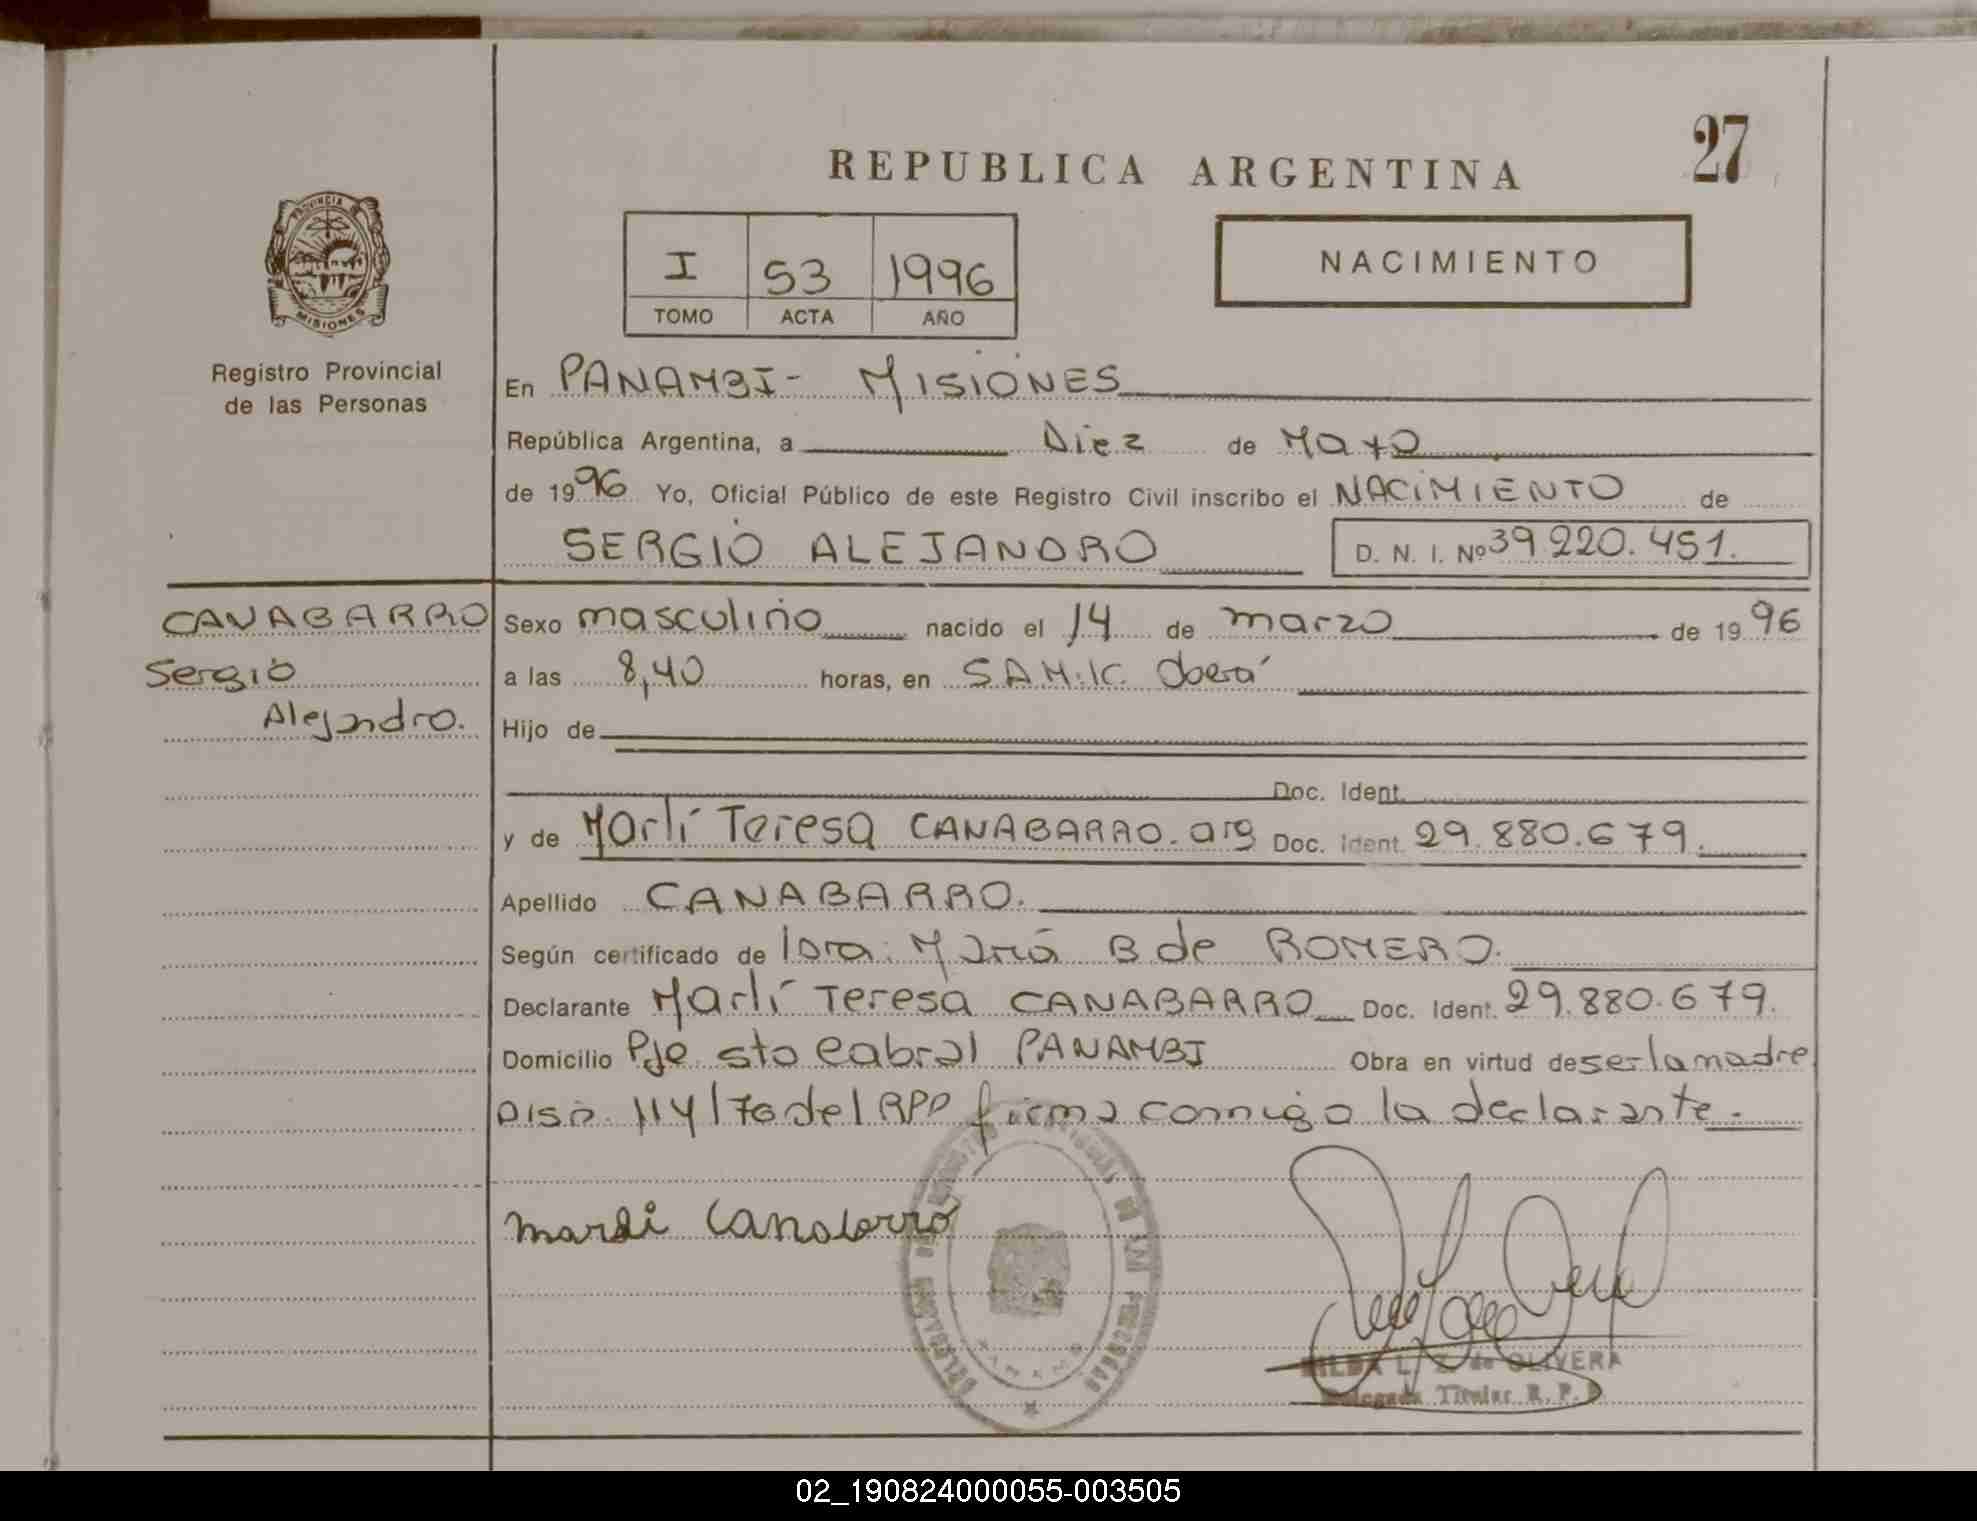 27
REPUBLICA ARGENTINA
PROVINCIA DE
MISIONES
Registro Provincial
de las Personas
I 53 1996
TOMO ACTA AÑO
NACIMIENTO
En PANAMBI - MISIONES
República Argentina, a Diez de Mayo
de 1996 Yo, Oficial Público de este Registro Civil inscribo el NACIMIENTO de
SERGIO ALEJANDRO D. N. I. Nº 39.220.451.
CANABARRO
Sergio
Alejandro.
Sexo masculino nacido el 14 de marzo de 1996
a las 8,40 horas, en S.A.M.I.C. Oberá
Hijo de
Doc. Ident.
y de Marlí Teresa CANABARRO. arg Doc. Ident. 29.880.679.
Apellido CANABARRO.
Según certificado de María B de ROMERO.
Declarante Marlí Teresa CANABARRO Doc. Ident. 29.880.679.
Domicilio Pje Sto Cabral PANAMBI Obra en virtud de ser la madre
Disp. 114/70 del RPP firma conmigo la declarante.
Marli Canabarro
HILDA L. Z. de OLIVERA
Delegada Titular R. P. P.
02_190824000055-003505